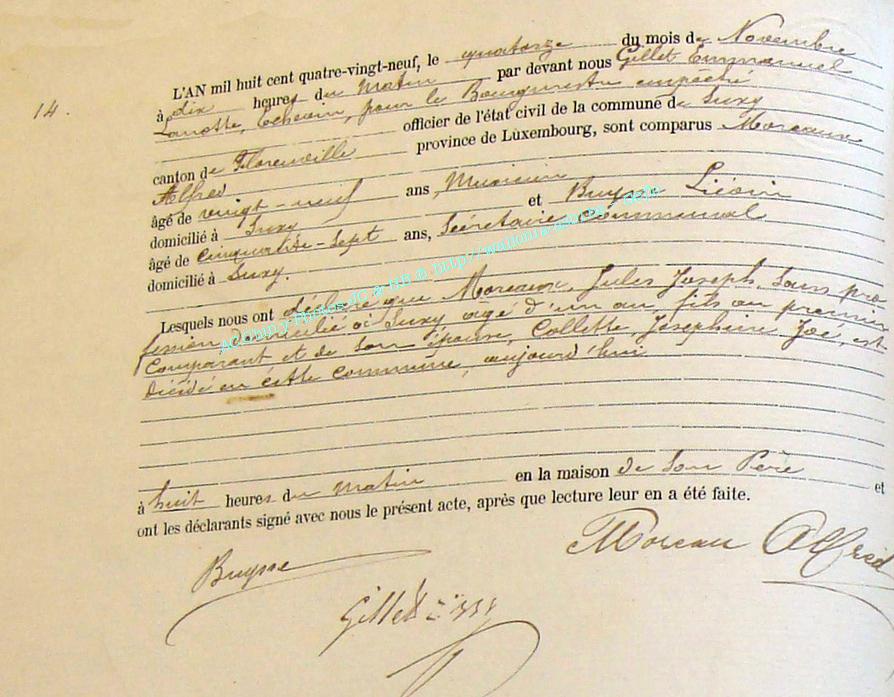 14.
L'AN mil huit cent quatre-vingt-neuf, le quatorze du mois de Novembre
à dix heures du Matin par devant nous Gillet Emmanuel
Lanotte, Echevin, pour le Bourgmestre empêché
officier de l'état civil de la commune de Suxy
canton de Florenville province de Luxembourg, sont comparus Moreaux
Alfred
âgé de vingt-neuf ans, Musicien
domicilié à Suxy et Buysse Liévin
âgé de cinquante-sept ans, Secrétaire communal
domicilié à Suxy.
Lesquels nous ont déclaré que Moreaux, Jules Joseph, sans pro
fession domicilié à Suxy âgé d'un an, fils au premier
Comparant et de son épouse, Collette, Joséphine Zoé, est
décédé en cette commune, aujourd'hui
à huit heures du matin en la maison de son Père et
ont les déclarants signé avec nous le présent acte, après que lecture leur en a été faite.
Buysse
Moreau Alfred
Gillet